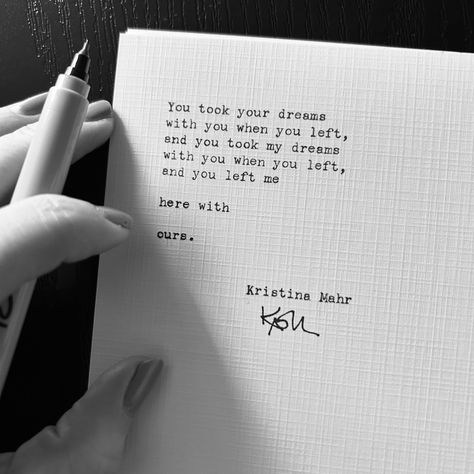 You took your dreams
with you when you left,
and you took my dreams
with you when you left,
and you left me
here with
ours.
Kristina Mahr